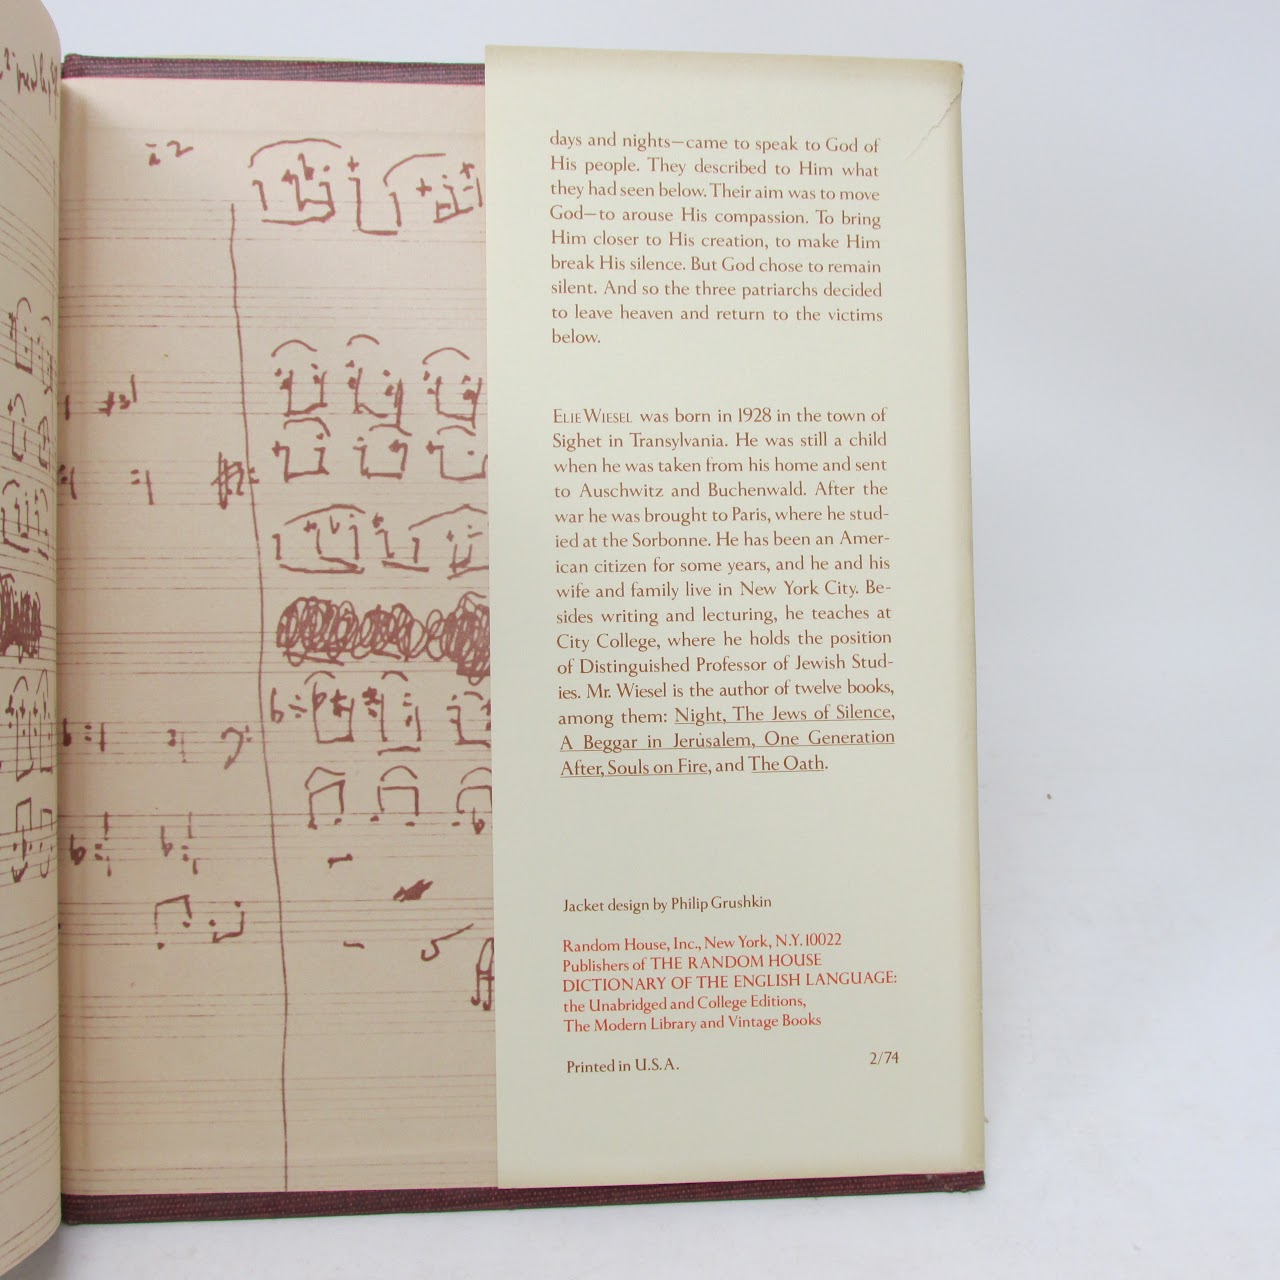 days and nights—came to speak to God of
His people. They described to Him what
they had seen below. Their aim was to move
God—to arouse His compassion. To bring
Him closer to His creation, to make Him
break His silence. But God chose to remain
silent. And so the three patriarchs decided
to leave heaven and return to the victims
below.
ELIE WIESEL was born in 1928 in the town of
Sighet in Transylvania. He was still a child
when he was taken from his home and sent
to Auschwitz and Buchenwald. After the
war he was brought to Paris, where he stud-
ied at the Sorbonne. He has been an Amer-
ican citizen for some years, and he and his
wife and family live in New York City. Be-
sides writing and lecturing, he teaches at
City College, where he holds the position
of Distinguished Professor of Jewish Stud-
ies. Mr. Wiesel is the author of twelve books,
among them: Night, The Jews of Silence,
A Beggar in Jerusalem, One Generation
After, Souls on Fire, and The Oath.
Jacket design by Philip Grushkin
Random House, Inc., New York, N.Y. 10022
Publishers of THE RANDOM HOUSE
DICTIONARY OF THE ENGLISH LANGUAGE:
the Unabridged and College Editions,
The Modern Library and Vintage Books
Printed in U.S.A. 2/74